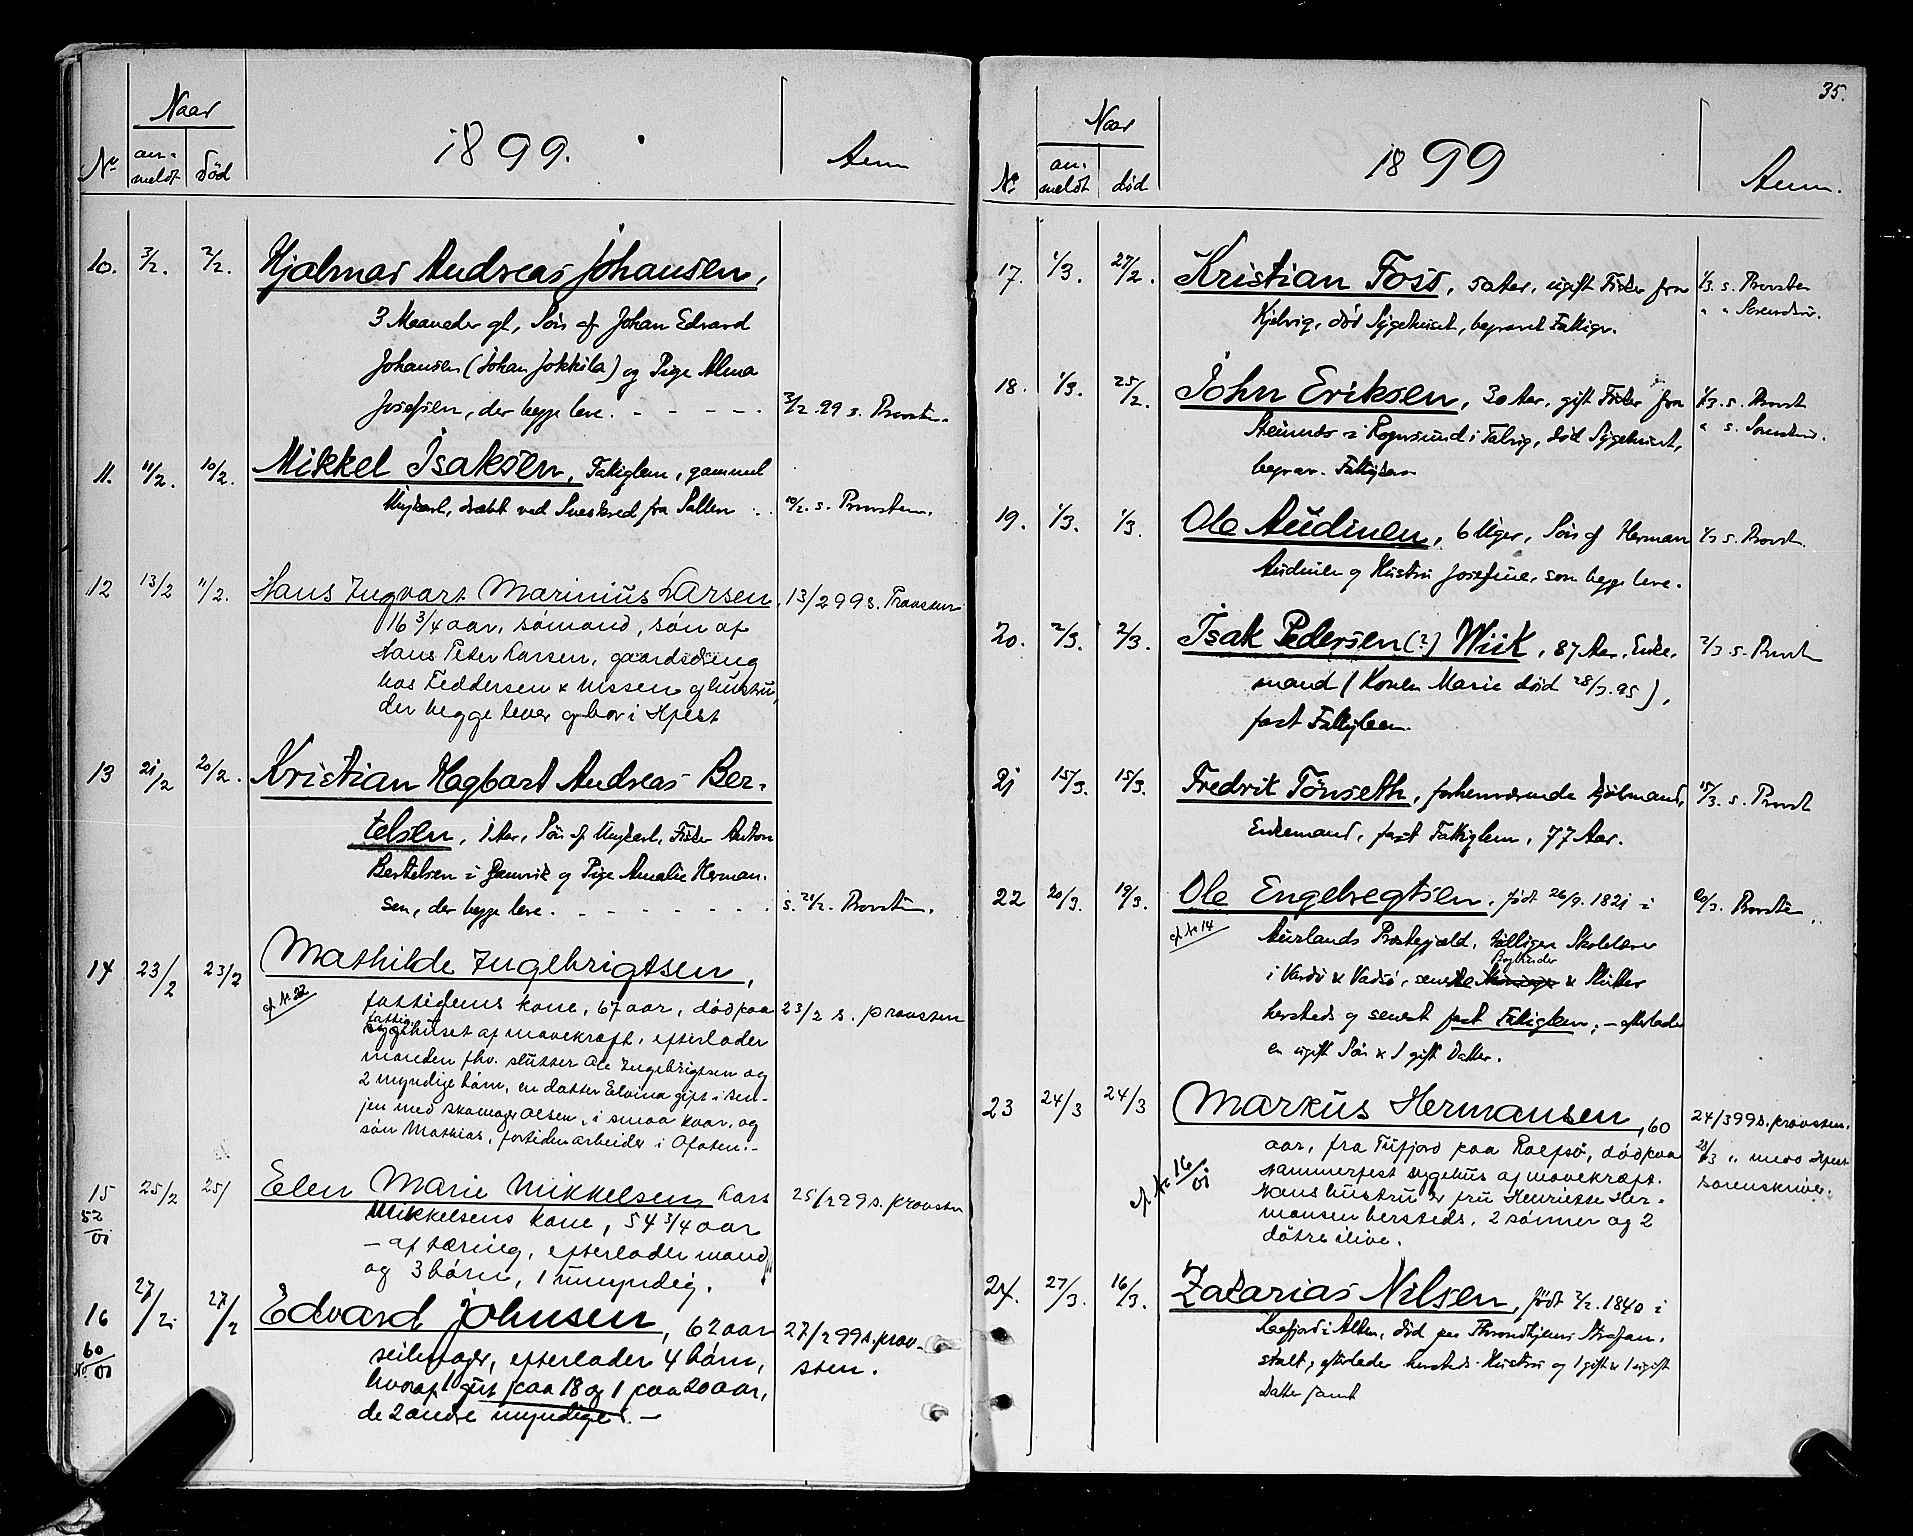 Naar
1899.
Anm
No
an-
meldt
død
10. 3/2. 2/2. Hjalmar Andreas Johansen,
3 Maaneder gl, Søn af Johan Edvard
Johansen (Johan Jokkila) og Pige Alma
Josefsen, der begge leve. - - - - - 3/2.99 s. Provsten.
11. 11/2. 10/2. Mikkel Isaksen, Fattiglem, gammel
Ungkarl, dræbt ved Sneskred fra Salen .. 10/2. s. Provsten.
12 13/2 11/2. Hans Ingvart Marinius Larsen, 13/2 99 s. Provsten
16 3/4 aar, sømand, søn af
Hans Peter Larsen, gaardsdreng
hos Feddersen & Nissen og hustru,
der begge lever og bor i Hfest
13 21/2 20/2. Kristian Hagbart Andreas Ber-
telsen, 1 Aar, Søn af Ungkarl, Fisker Anton
Bertelsen i Gamvik og Pige Amalie Herman-
sen, der begge leve. - - - - - - - s. 21/2. Provsten.
14 23/2 23/2 Mathilde Ingebrigtsen,
cf. Nr. 22
fattiglems kone, 67 aar, død paa 23/2 s. provsten
fattig
sygehuset af mavekræft, efterlader
manden fhv. slutter Ole Ingebrigtsen og
2 myndige børn, en datter Elvina gift i Sen-
jen med skomager Olsen, i smaa kaar, og
søn Mathias, fortiden arbeider i Ofoten.-
15 25/2 25/ Elen Marie Mikkelsen, Lars 25/2 99 s. provsten
52/01
Mikkelsens kone, 54 3/4 aar
- af tæring, efterlader mand
og 3 børn, 1 umyndig.
16 27/2. 27/2 Edvard Johnsen, 62 aar 27/2 99 s. prov-
sten.
No. 60/01
seilmager, efterlader 4 børn,
hvoraf 1 gut paa 18 og 1 paa 20 aar,
de 2 andre myndige. -
35.
Naar
1899
Anm.
No
an-
meldt
død
17. 1/3. 27/2. Kristian Foss, 50 Aar, ugift Fisker fra 1/3. s. Provsten
" " Sorenskriv.
Kjelvig, død Sygehuset, begravet Fattigv.
18. 1/3. 25/2. John Eriksen, 30 Aar, gift Fisker fra 1/3. s. Provst
" s. Sorenskriv.
i Rognsund i Talvig, død Sygehuset,
begrav. Fattigv.
19. 1/3. 1/3. Ole Audinen, 6 Uger, Søn af Herman 1/3 s. Provst.
Audinen og Hustru Josefine, som begge leve.
20. 2/3. 2/3. Isak Pedersen (?) Wiik, 87 Aar, Enke- 2/3 s. Provst
mand (Konen Marie død 28/7.95),
fast Fattiglem.
21 15/3. 15/3. Fredrik Tönseth, forhenværende Kjøbmand, 15/3. s. Provst
Enkemand, fast Fattiglem, 77 Aar.
22 20/3. 19/3. Ole Engebregtsen, født 26/9. 1821 i 20/3. Provsten
cf. Nr. 14
Aurlands Præstegjæld, tidligere Skolelærer
Bogbinder
i Vardø & Vadsø, senere & Slutter
hersteds og senest fast Fattiglem; - efterlader
en ugift Søn & 1 gift Datter.
23 24/3 24/3 Markus Hermansen, 60 24/3 99 s. provsten.
cf. Nr. 16/01
aar, fra Tufjord paa Rolfsø, død paa 28/3 " med Hfest
sorenskriver.
Hammerfest sygehus af mavekræft.
Hans hustru er fru Henriette Her-
mansen hersteds, 2 sønner og 2
døtre ilive.
24. 27/3. 16/3. Zakarias Nilsen, født 2/2. 1840 i
Kaafjord i Alten, død paa Throndhjems Strafan-
stalt, efterlader hersteds Hustru og 1 gift & 1 ugift
Datter samt